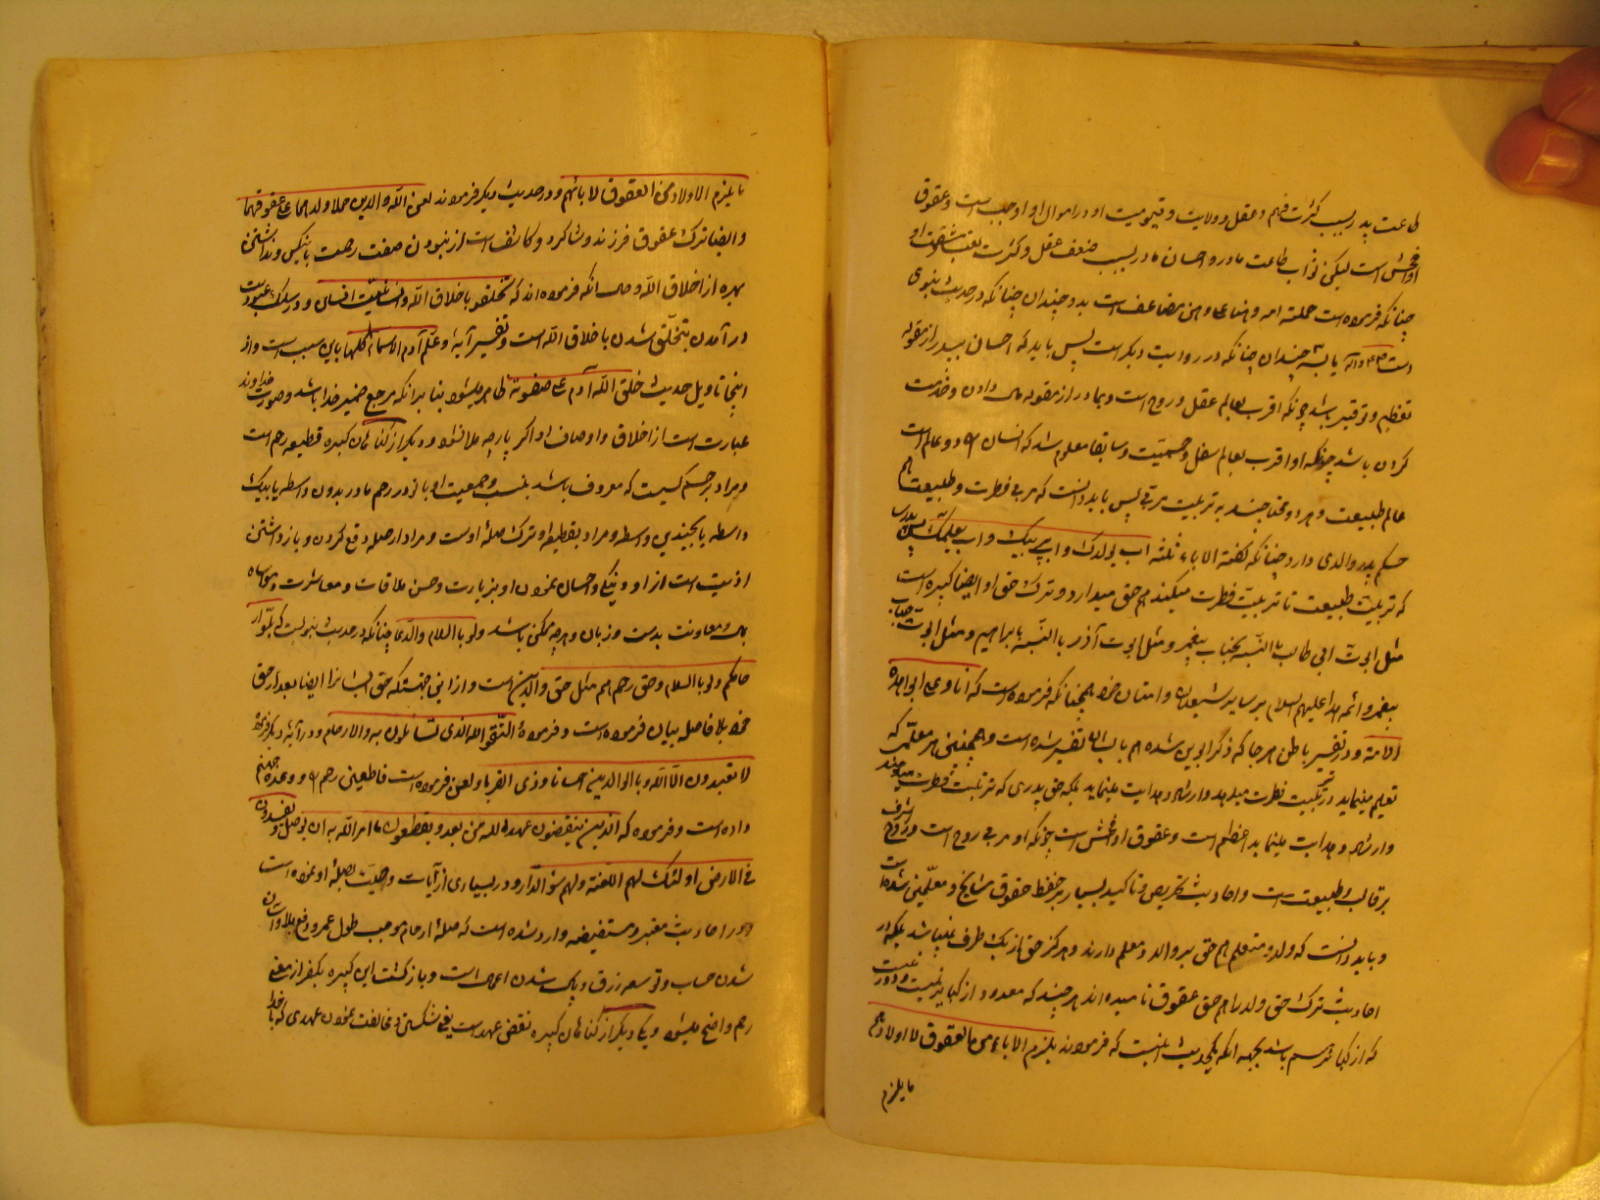 طاعت پدر بسبب کثرت فهم و عقل و ولایت و قیومیت او در اموال او اوجب است و عقوق
او فحش است لیکن ثواب طاعت مادر و احسان مادر بسبب ضعف عقل و کثرت تعب و مشقت او
چنانکه فرموده است حملته امه وهنا علی وهن مضاعف است بدو چندان چنانکه در حدیث نبوی
است و آله یا بسه چندان چنانکه در روایت دیگر است پس باید که احسان بپدر از مقوله
تعظیم و توقیر باشد چونکه اقرب بعالم عقل و روح است و بمادر از مقوله مال دادن و خدمت
کردن باشد چونکه او اقرب بعالم سفل و جسمیت و سابقا معلوم شد که انسان را دو عالم است
عالم طبیعت و هر دو محتاجند به تربیت مربی پس باید دانست که مربی فطرت و طبیعت هم
حکم پدر والدی دارد چنانکه گفته الاباء ثلثه اب یولدک و اب یربیک و اب یعلمک پس پدر
که تربیت طبیعت تا تربیت فطرت میکند هم حق میدارد و ترک حق او ایضا کبیره است
مثل ابوت ابی طالب بالنسبه بجناب پیغمبر و مثل ابوت آذر بالنسبه بابراهیم و مثل ابوت جناب
پیغمبر و ائمه هدا علیهم السلام بر سایر شیعیان و امتان خود همچنانکه فرموده است که انا و علی ابوا هذه
الامة و در تفسیر باطن هر جا که ذکر ابوین شده هم باب ایشان تفسیر شده است و همچنین هر معلمی که
تعلیم مینماید و تربیت فطرت میدهد و ارشاد و هدایت مینماید بلکه حق پدری که تربیت فطرت میکند
و ارشاد و هدایت مینماید اعظم است و عقوق او افحش است چونکه او مربی روح است و روح اشرف
بر قالب و طبیعت است و احادیث بتحریص و تاکید بسیار بر حفظ حقوق مشایخ و معلمین شده است
و باید دانست که ولد و متعلم هم حقی بر والد و معلم دارند و هرگز حق از یک طرف نمیباشد بلکه در
احادیث ترک حق ولد را هم حق عقوق نامیده اند هر چند که معدود از کبایر نیست و دور نیست
که از کبایر هم باشد بجهه آنکه یکحدیث اینست که فرموده اند یلزم الاباء من العقوق لاولادهم
ما یلزم
ما یلزم الاولاد من العقوق لابائهم و در حدیث دیگر فرموده اند لعن الله والدین حملا ولدهما علی عقوقهما
و ایضا ترک عقوق فرزند و شاگرد و کاشف است از نبودن صفت رحمت با نیکس و نداشتن
بهره از اخلاق الله و حال آنکه فرموده اند که تخلقوا باخلاق الله و انسانیت انسان و در سلک عبودیت
در آمدن بتخلق شدن باخلاق الله است و تفسیر آیهٔ و علم آدم الاسماء کلها باین سبب است و از
اینجا تاویل حدیث خلق الله آدم علی صورته ظاهر میشود بنا بر آنکه مرجع ضمیر خدا باشد و صورت خداوند
عبارت است از اخلاق و اوصاف او اگر پارچه ملا نشود و دیگر از گناهان کبیره قطیعه رحم است
و مراد بر رحم کسیست که معروف باشد بنسب و جمعیت او با تو در رحم مادر بدون واسطه یا بیک
واسطه یا بچندین واسطه و مراد بقطیعه و ترک صله اوست و مراد از صله دفع کردن و بازداشتن
اذیت است از او و نیکی و احسان نمودن او بزیارت و حسن ملاقات و معاشرت و مواساه
بمال و معاونت بدست و زبان و هر چه ممکن باشد ولو بالسلام والدعا چنانکه در حدیث نبویست که بلوا
ارحامکم ولو بالسلام و حق رحم هم مثل حق والدین است و از این جهتست که حق ایشانرا ایضا بعد از حق
خود بلا فاصله بیان فرموده است و فرموده اتقوا الله الذی تسائلون به والارحام و در آیهٔ دیگر فرمود
لا تعبدون الا الله وبالوالدین احسانا وذی القربی و لعن فرموده است قاطعین رحم را و وعده جهنم
داده است و فرموده که الذین ینقضون عهد الله من بعد ویقطعون ما امر الله به ان یوصل ویفسدون
فی الارض اولئک لهم اللعنة ولهم سوء الدار و در بسیاری از آیات وصیت بصله او نموده است
و در احادیث معتبر و مستفیضه وارد شده است که صله ارحام موجب طول عمر و دفع بلا و آسان
شدن حساب و توسعه رزق و پاک شدن اعمال است و بازگشت این کبیره بکفر از معنی
رحم واضح میشود و یکی دیگر از گناهان کبیره نقض عهد است یعنی شکستن و مخالفت نمودن عهدی که با خدا